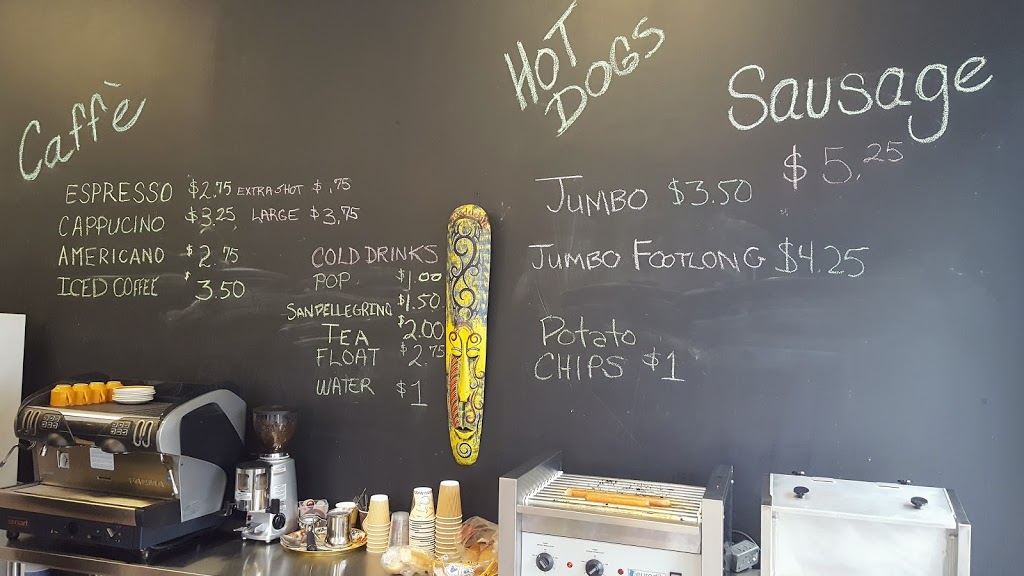 Caffè
ESPRESSO $2.75 EXTRA SHOT $.75
CAPPUCINO $3.25 LARGE $3.75
AMERICANO $2.75
ICED COFFEE $3.50
COLD DRINKS
POP $1.00
SANPELLEGRINO $1.50
TEA $2.00
FLOAT $2.75
WATER $1
HOT
DOGS
JUMBO $3.50
JUMBO FOOTLONG $4.25
Potato
CHIPS $1
Sausage
$5.25